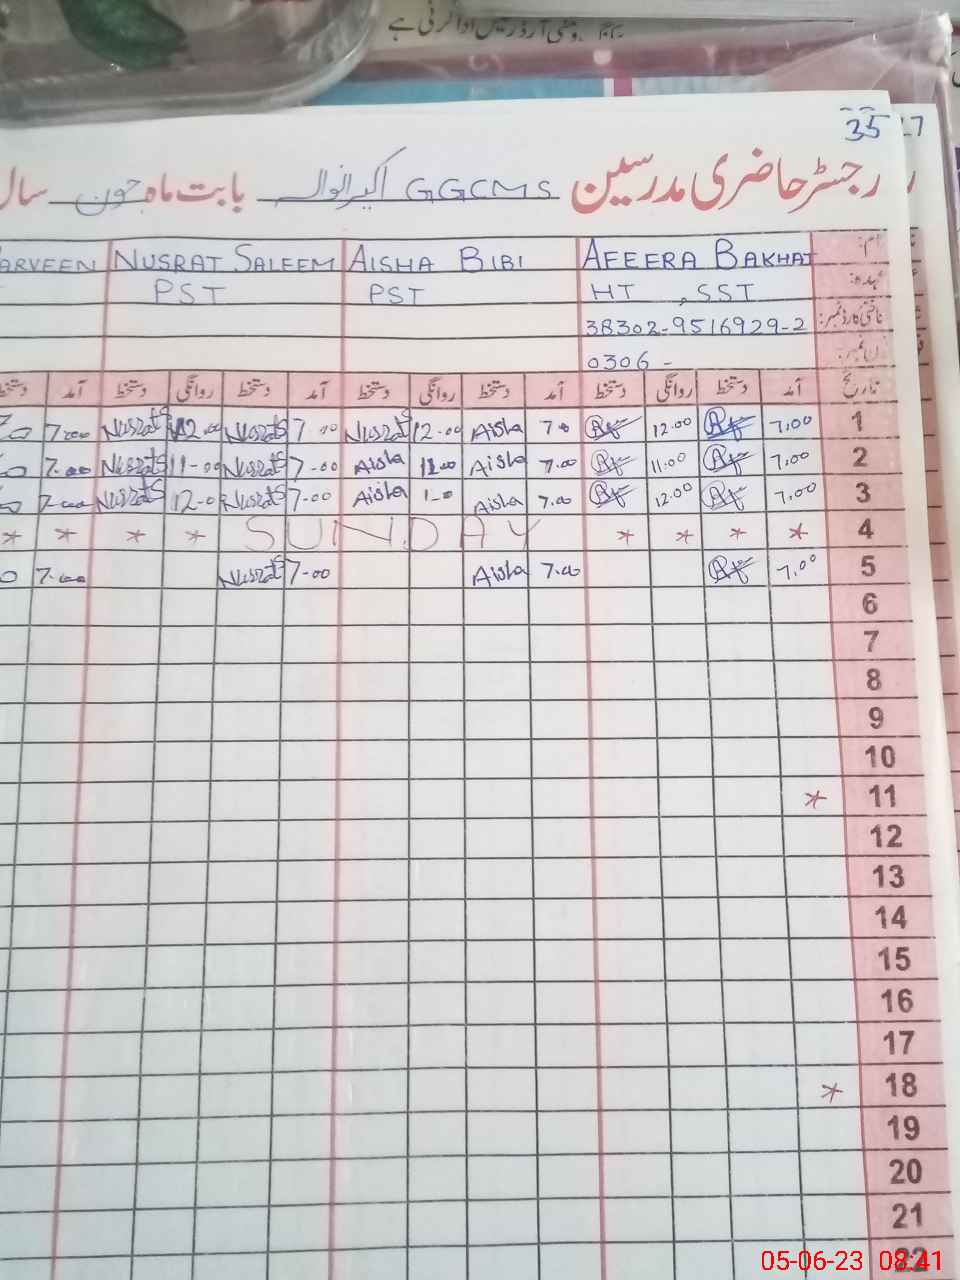 آرڈر میں ادا کرنی ہے
35
17
رجسٹر حاضری مدرسین GGCMS اکبرانوالہ بابت ماہ جون سال
نام: AFEERA BAKHAT AISHA BIBI NUSRAT SALEEM ARVEEN
عہدہ: HT , SST PST PST
شناختی کارڈ نمبر: 38302-9516929-2
فون نمبر: 0306 -
تاریخ آمد دستخط روانگی دستخط آمد دستخط روانگی دستخط آمد دستخط روانگی دستخط آمد دستخط
1 7.00 12.00 7.0 Aisha 12.00 Nusrat 7.00 Nusrat 12.00 Nusrat 7.00
2 7.00 11.00 7.00 Aisha 11.00 Aisha 7-00 Nusrat 11-00 Nusrat 7.00
3 7.00 12.00 7.00 Aisha 1-0 Aisha 7-00 Nusrat 12-0 Nusrat 7-00
4 * * * * SUNDAY * * * *
5 7.00 7.00 Aisha 7-00 Nusrat 7.00
6
7
8
9
10
11 *
12
13
14
15
16
17
18 *
19
20
21
22
05-06-23 08:41